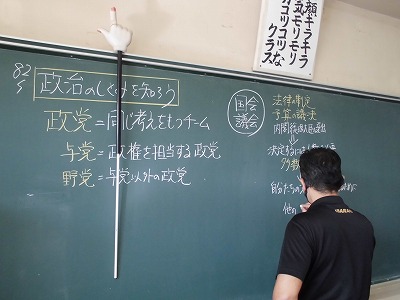 顔ギラギラ
気モリモリ
ガコリコリな
クラス
82
5
政治のしくみを知ろう
政党=同じ考えをもつチーム
与党=政権を担当する政党
野党=与党以外の政党
国会
議会
法律の制定
予算の議決
内閣総理大臣の選出
決定するには
多数
自分たちの
他の